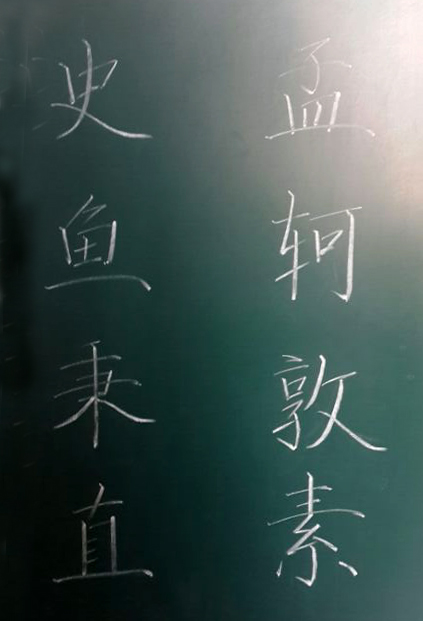 孟轲敦素
史鱼秉直